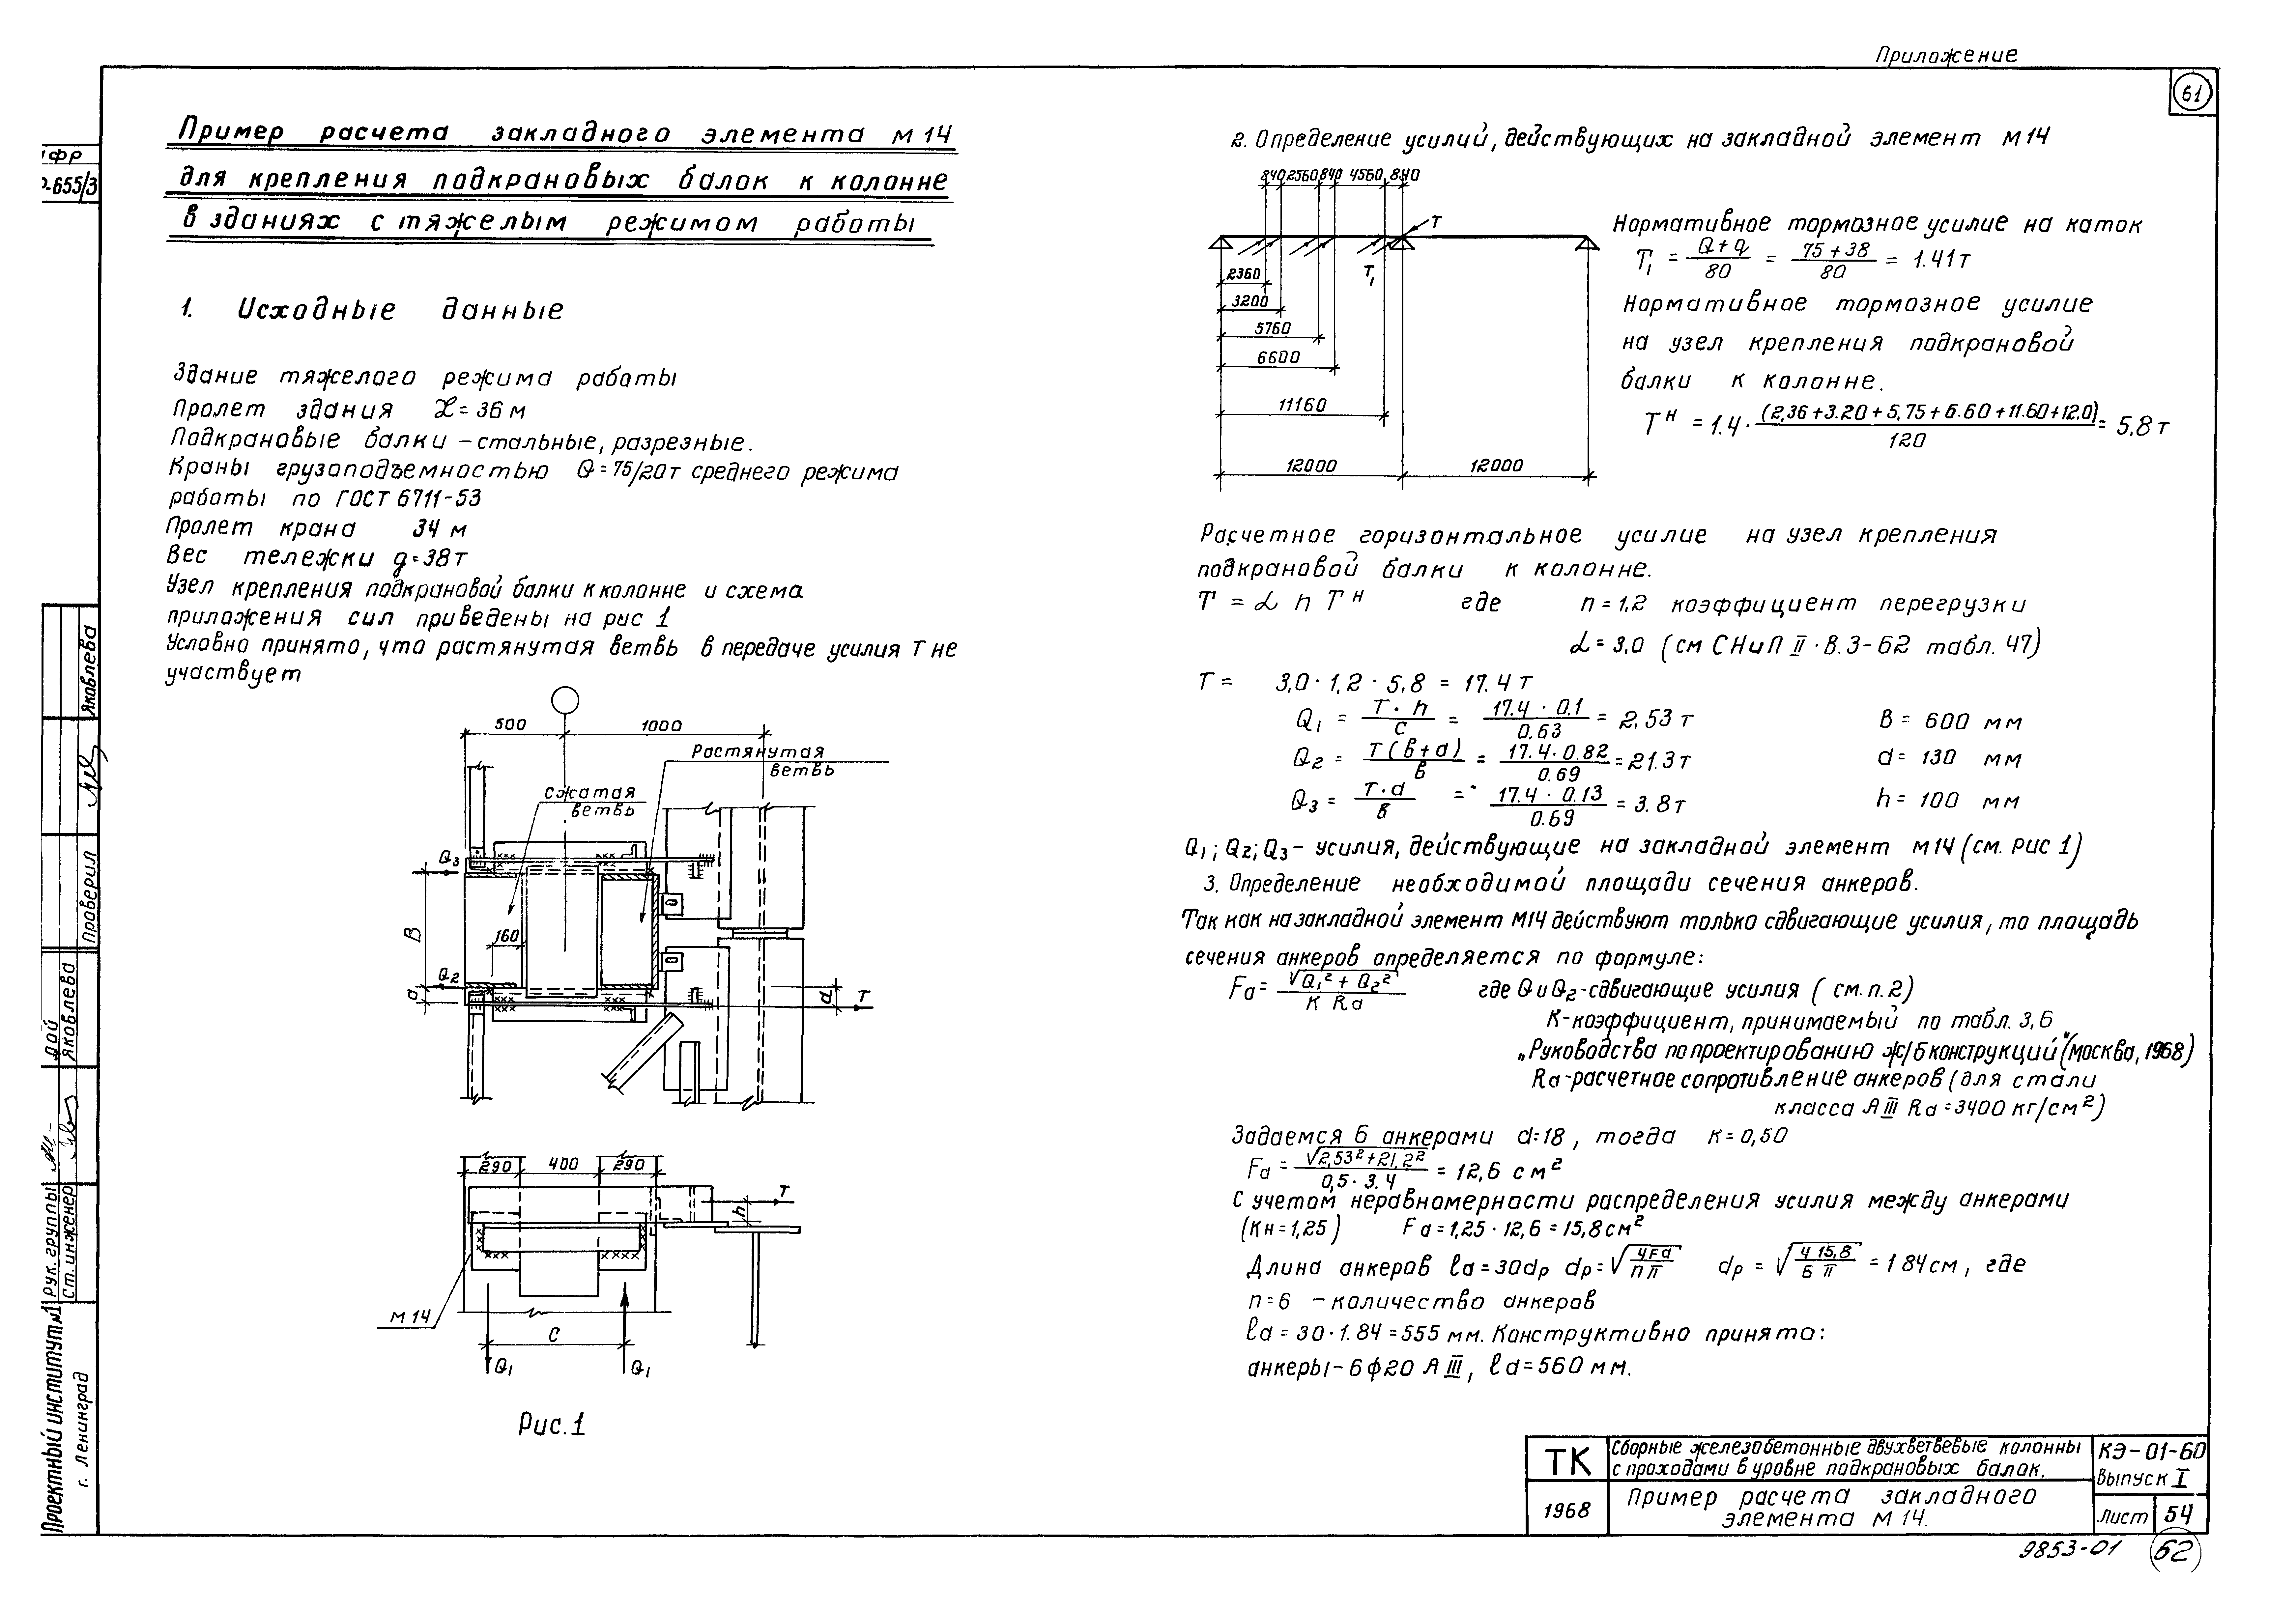 Приложение
61
Пример расчета закладного элемента М14
для крепления подкрановых балок к колонне
в зданиях с тяжелым режимом работы
1. Исходные данные
Здание тяжелого режима работы
Пролет здания L = 36 м
Подкрановые балки – стальные, разрезные.
Краны грузоподъемностью Q = 75/20т среднего режима
работы по ГОСТ 6711-53
Пролет крана 34 м
Вес тележки g = 38т
Узел крепления подкрановой балки к колонне и схема
приложения сил приведены на рис 1
Условно принято, что растянутая ветвь в передаче усилия Т не
участвует
500 1000
Растянутая
ветвь
сжатая
ветвь
Q3
В
160
Q2
а
d
Т
290 400 290
Т
h
М 14
С
Q1 Q1
Рис. 1
2. Определение усилий, действующих на закладной элемент М14
840 2560 840 4560 840
Т
2360
Т1
3200
5760
6600
11160
12000 12000
Нормативное тормозное усилие на каток
T1 = (Q+q)/80 = (75+38)/80 = 1.41т
Нормативное тормозное усилие
на узел крепления подкрановой
балки к колонне.
Tн = 1.4 · (2,36+3.20+5,75+6.60+11.60+12.0)/120 = 5,8 т
Расчетное горизонтальное усилие на узел крепления
подкрановой балки к колонне.
T = α n Tн где n = 1,2 коэффициент перегрузки
α = 3,0 (см СНиП II · В.3-62 табл. 47)
Т = 3,0 · 1,2 · 5,8 = 17.4 т
Q1 = T·h/c = 17.4 · 0.1/0.63 = 2,53 т В = 600 мм
Q2 = T(в+а)/в = 17.4·0.82/0.69 = 21.3т d = 130 мм
Q3 = T·а/в = 17.4 · 0.13/0.69 = 3.8т h = 100 мм
Q1; Q2; Q3 – усилия, действующие на закладной элемент М14 (см. рис 1)
3. Определение необходимой площади сечения анкеров.
Так как на закладной элемент М14 действуют только сдвигающие усилия, то площадь
сечения анкеров определяется по формуле:
Fа = √(Q1² + Q2²)/(К Rа) где Q и Q2 - сдвигающие усилия ( см. п. 2)
К-коэффициент, принимаемый по табл. 3,6
„Руководства по проектированию ж/б конструкций" (Москва, 1968)
Rа-расчетное сопротивление анкеров (для стали
класса А III Rа = 3400 кг/см²)
Задаемся 6 анкерами d=18, тогда к = 0,50
Fа = √(2,53²+21,2²)/(0,5 · 3.4) = 12,6 см²
С учетом неравномерности распределения усилия между анкерами
(Кн = 1,25) Fа = 1,25 · 12,6 = 15,8 см²
Длина анкеров ℓа = 30dр dр = √(4Fа/(nπ)) dр = √(4 15,8/(6 π)) = 1 84см, где
n = 6 – количество анкеров
ℓа = 30 · 1.84 = 555 мм. Конструктивно принято:
анкеры – 6ф20 А III, ℓа = 560 мм.
ТК
Сборные железобетонные двухветвевые колонны
с проходами в уровне подкрановых балок.
КЭ-01-60
Выпуск I
1968
Пример расчета закладного
элемента М 14.
Лист 54
9853-01 62
Яковлева
Проверил
Яковлева
Рук. группы
Ст. инженер
Проектный институт №1
г. Ленинград